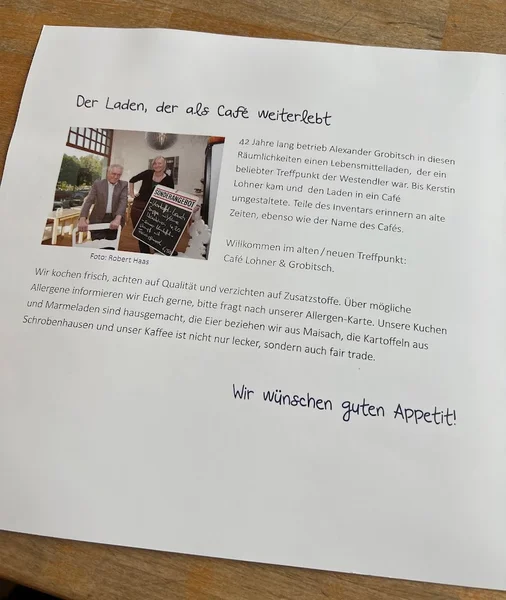 Der Laden, der als Café weiterlebt
42 Jahre lang betrieb Alexander Grobitsch in diesen
Räumlichkeiten einen Lebensmittelladen, der ein
beliebter Treffpunkt der Westendler war. Bis Kerstin
Lohner kam und den Laden in ein Café
umgestaltete. Teile des Inventars erinnern an alte
Zeiten, ebenso wie der Name des Cafés.
Willkommen im alten/neuen Treffpunkt:
Café Lohner & Grobitsch.
SONDERANGEBOT
Foto: Robert Haas
Wir kochen frisch, achten auf Qualität und verzichten auf Zusatzstoffe. Über mögliche
Allergene informieren wir Euch gerne, bitte fragt nach unserer Allergen-Karte. Unsere Kuchen
und Marmeladen sind hausgemacht, die Eier beziehen wir aus Maisach, die Kartoffeln aus
Schrobenhausen und unser Kaffee ist nicht nur lecker, sondern auch fair trade.
Wir wünschen guten Appetit!